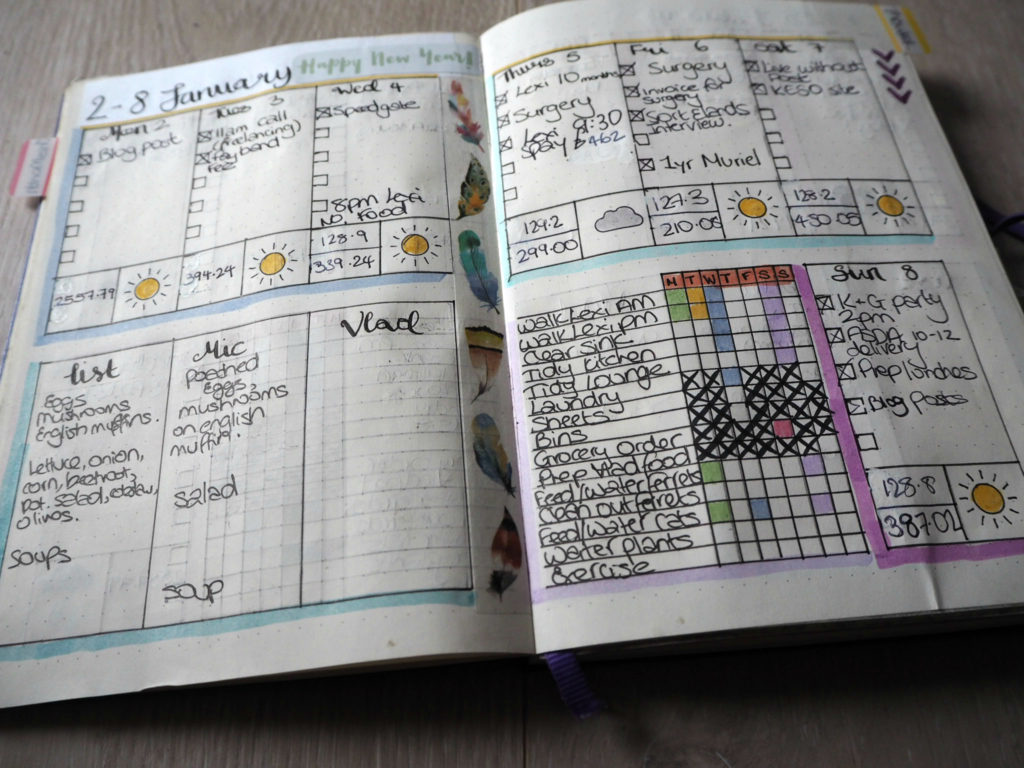 2-8 January
Happy New Year!
Mon 2
Blog post
2557.79
Tues 3
11am call
(freelancing)
fay bend
feez
394.24
Wed 4
Speedgate
8pm Lexi
No Food
128.9
339.24
List
Eggs
mushrooms
English muffins.
Lettuce, onion,
corn, beetroot,
pot. salad, coleslaw,
olives.
Soups
Mic
poached
Eggs
mushrooms
on english
muffin.
Salad
Soup
Vlad
Thurs 5
Lexi 10 months
Surgery
Lexi 9:30
Spay
£462
129.2
299.00
Fri 6
Surgery
Invoice for
surgery
Sport Elands
interview.
1yr Muriel
127.3
210.05
Sat 7
Live without
Post
KESO site
128.2
450.05
M T W T F S S
Walk Lexi AM
Walk Lexi PM
Clear sink
Tidy kitchen
Tidy lounge
Laundry
Sheets
Bins
Grocery order
Prep Vlad food
Feed/water ferrets
Clean out ferrets
Feed/water cats
Water plants
Exercise
Sun 8
K+G party
2pm
ASDA 10-12
delivery
Prep lunches
Blog posts
128.8
387.02